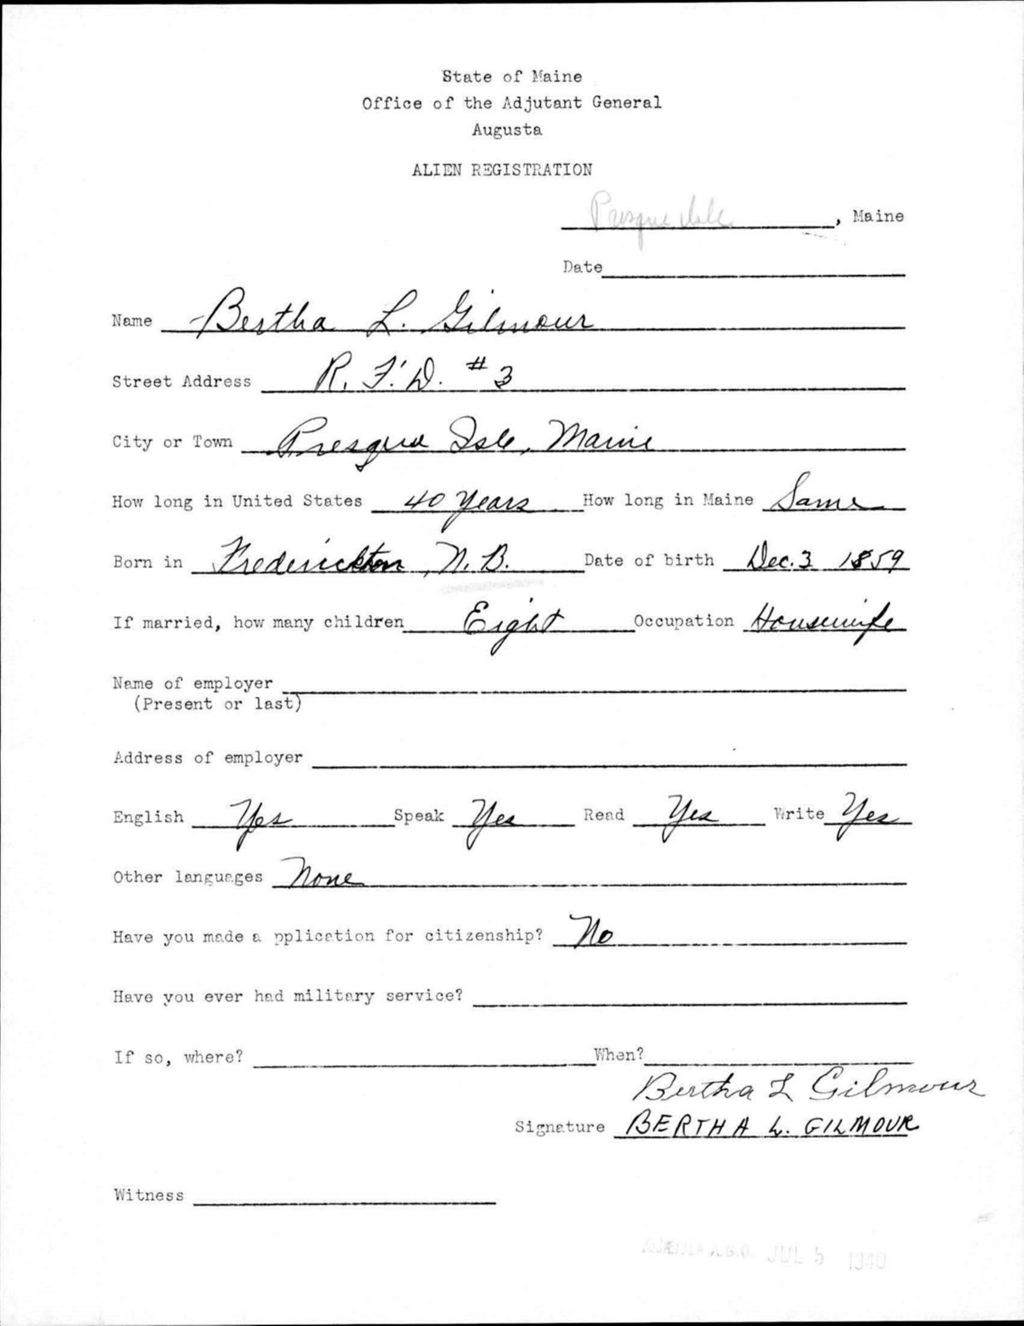 State of Maine
Office of the Adjutant General
Augusta
ALIEN REGISTRATION
Presque Isle, Maine
Date
Name Bertha L. Gilmour
Street Address R. F. D. #3
City or Town Presque Isle, Maine
How long in United States 40 Years How long in Maine Same
Born in Frederickton, N. B. Date of birth Dec. 3 1859
If married, how many children Eight Occupation Housewife
Name of employer
(Present or last)
Address of employer
English Yes Speak Yes Read Yes Write Yes
Other languages None
Have you made a pplication for citizenship? No
Have you ever had military service?
If so, where? When?
Bertha L Gilmour
Signature BERTHA L. GILMOUR
Witness
A.G.O. JUL 5 1940